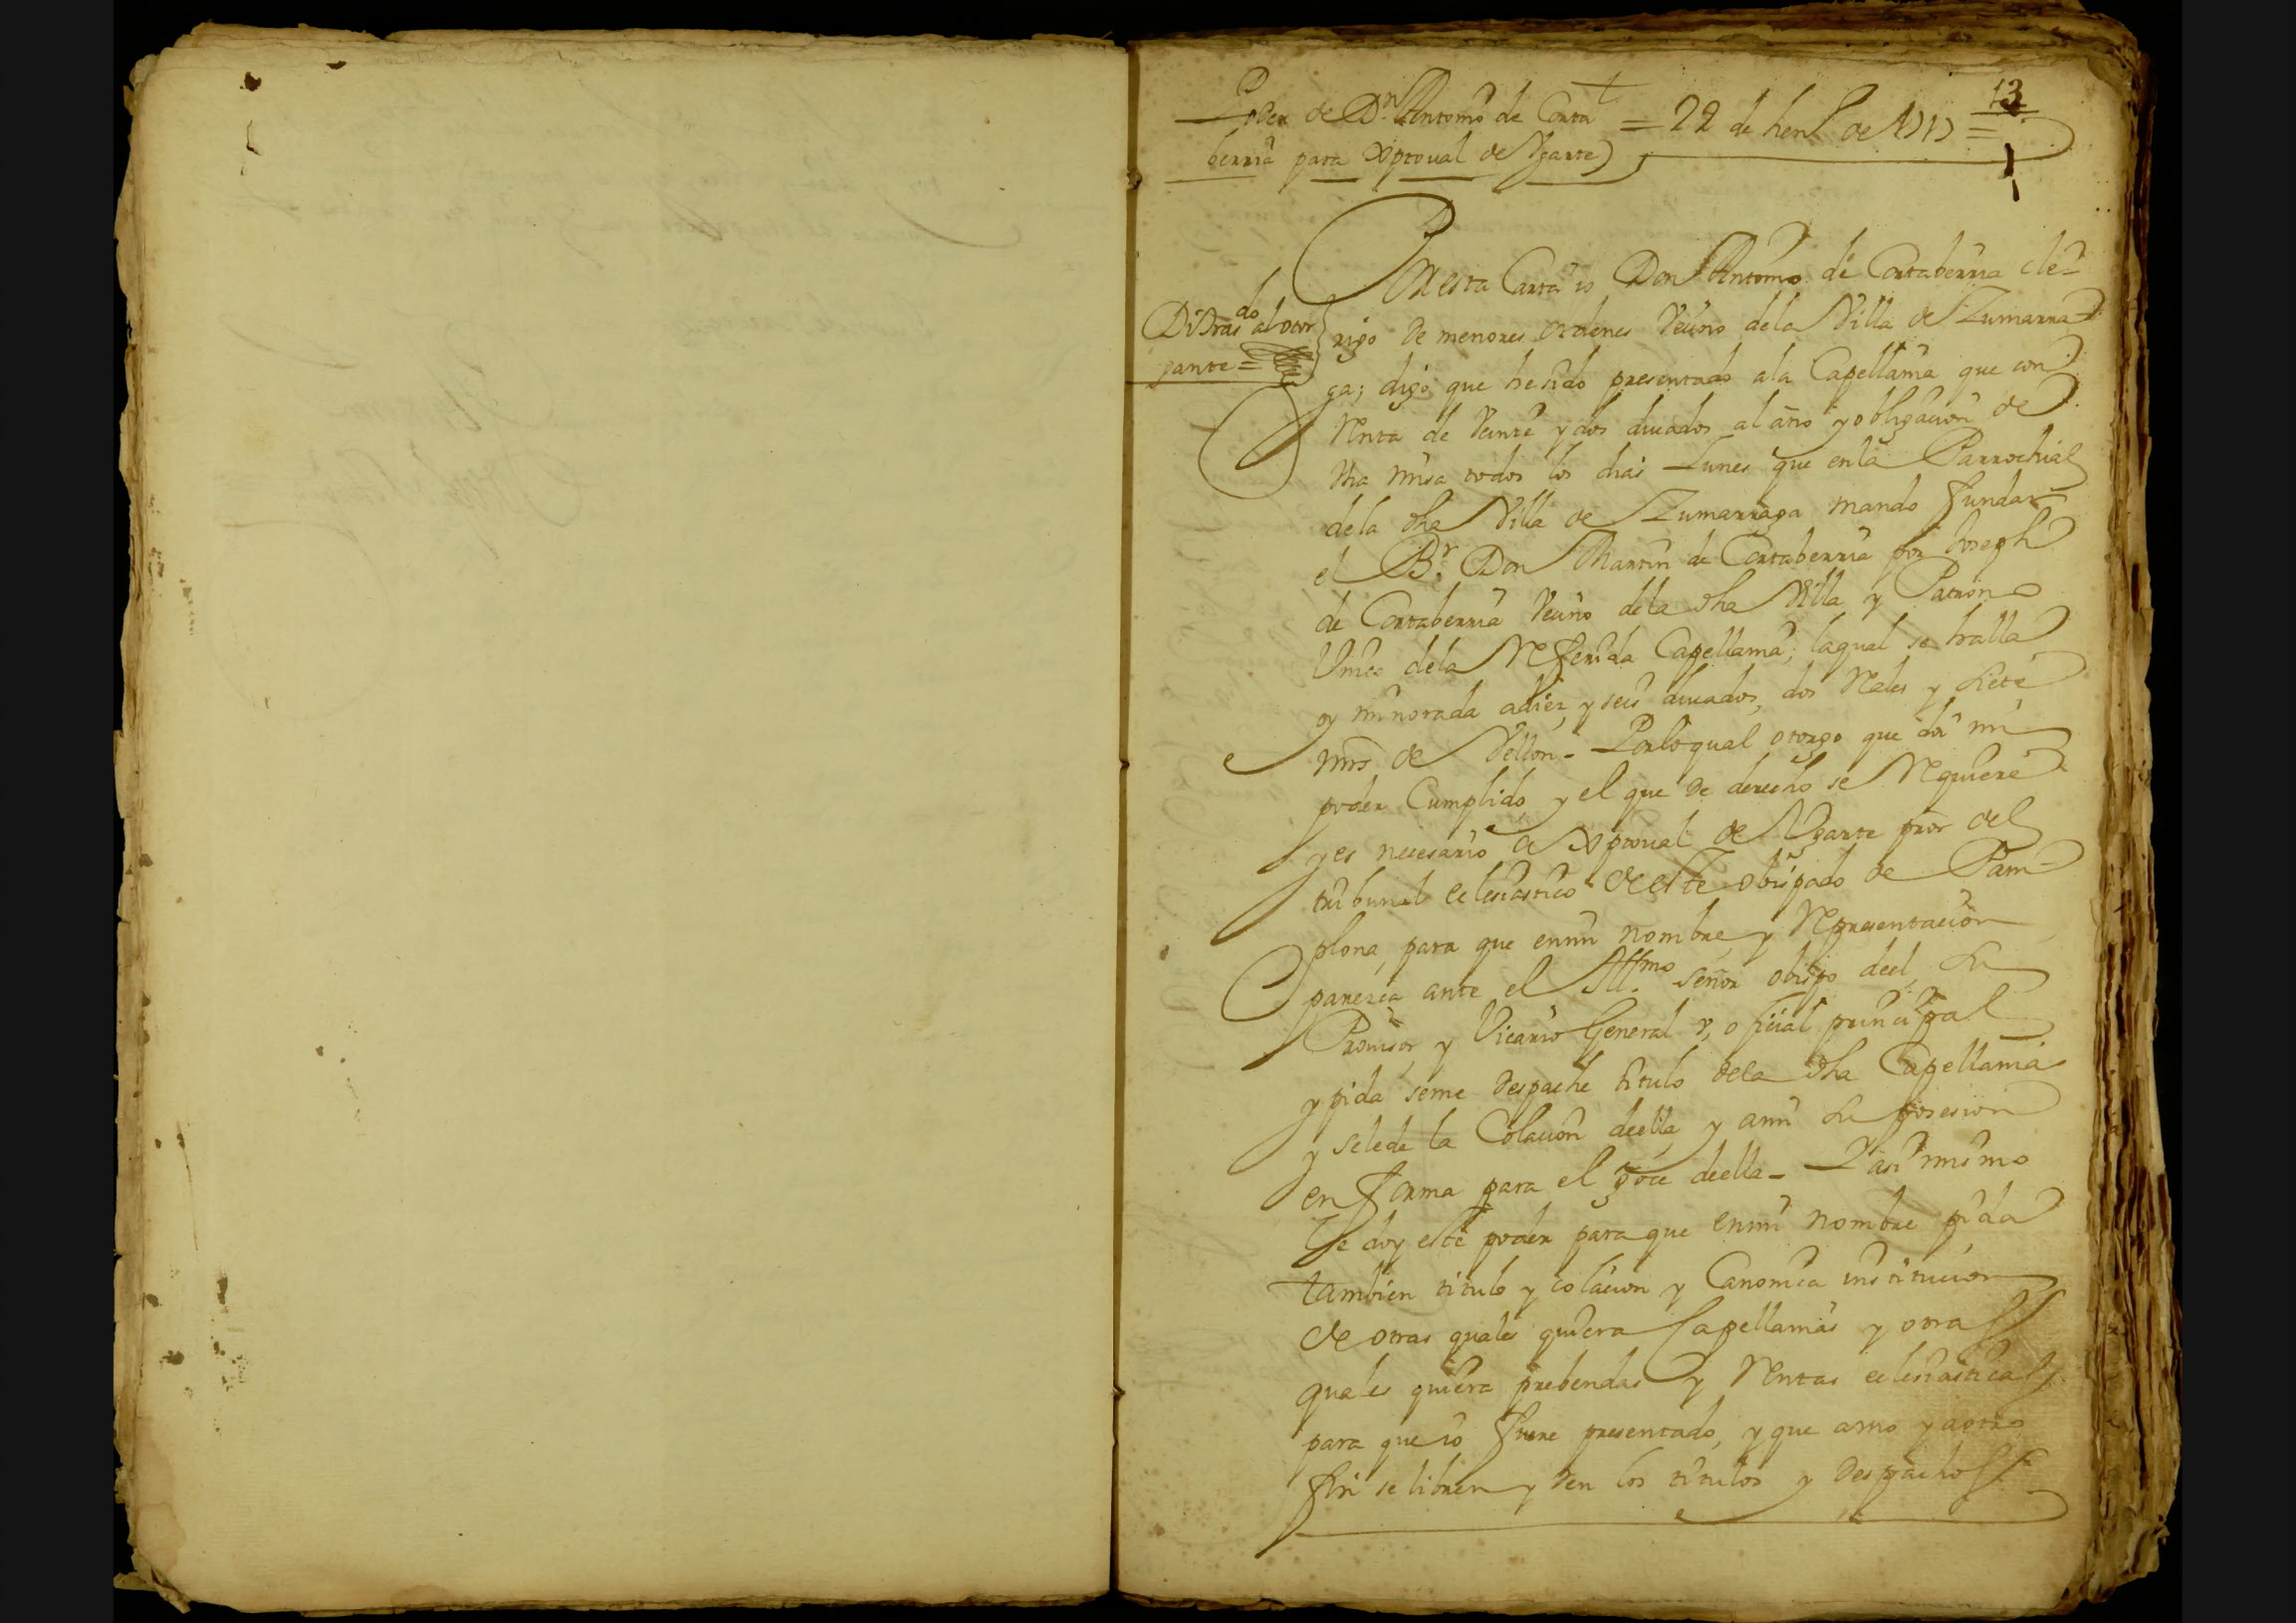 13
Poder de Dn Antonio de Corta
berria para Xptoual de Vgarte = 22 de hen.o de 1717 =
Di Tras.do al otor
gante =
En esta Carta io Don Antonio de Cortaberria cle-
rigo de menores ordenes Veçino dela Villa de Zumarra-
ga; digo que he sido presentado ala Capellania que con
Renta de Veinte y dos ducados al año y obligaçion de
Vna misa todos los dias Lunes que enla Parrochial
dela dha Villa de Zumarraga mando fundar
el Br. Don Martin de Cortaberria por Joseph
de Cortaberria Veçino dela dha Villa y Patrono
Vnico dela Referida Capellania, laqual se halla
oy minorada adiez y seis ducados, dos Reales y siete
mrs de Vellon - Porloqual otorgo que doi mi
poder Cumplido y el que de derecho se Requiere
y es necesario a Xptoual de Vgarte pror del
tribunal eclesiastico de este obispado de Pam-
plona, para que enmi nombre y Representaçion
parezca ante el Illmo señor obispo deel, su
Prouisor y Vicario General y, oficial prinçipal
y pida seme Despache titulo dela dha Capellania
y selede la Colaçion deella, y ami la posesion
en forma para el goçe deella - Y asi mismo
le doy este poder para que enmi nombre pida
tambien titulo y colaçion y Canonica instituçion
de otras quales quiera Capellanias y otras
quales quiera prebendas y Rentas eclesiasticas
para que io fuere presentado, y que a mio y aotro
fin se libren y den los titulos y Despachos